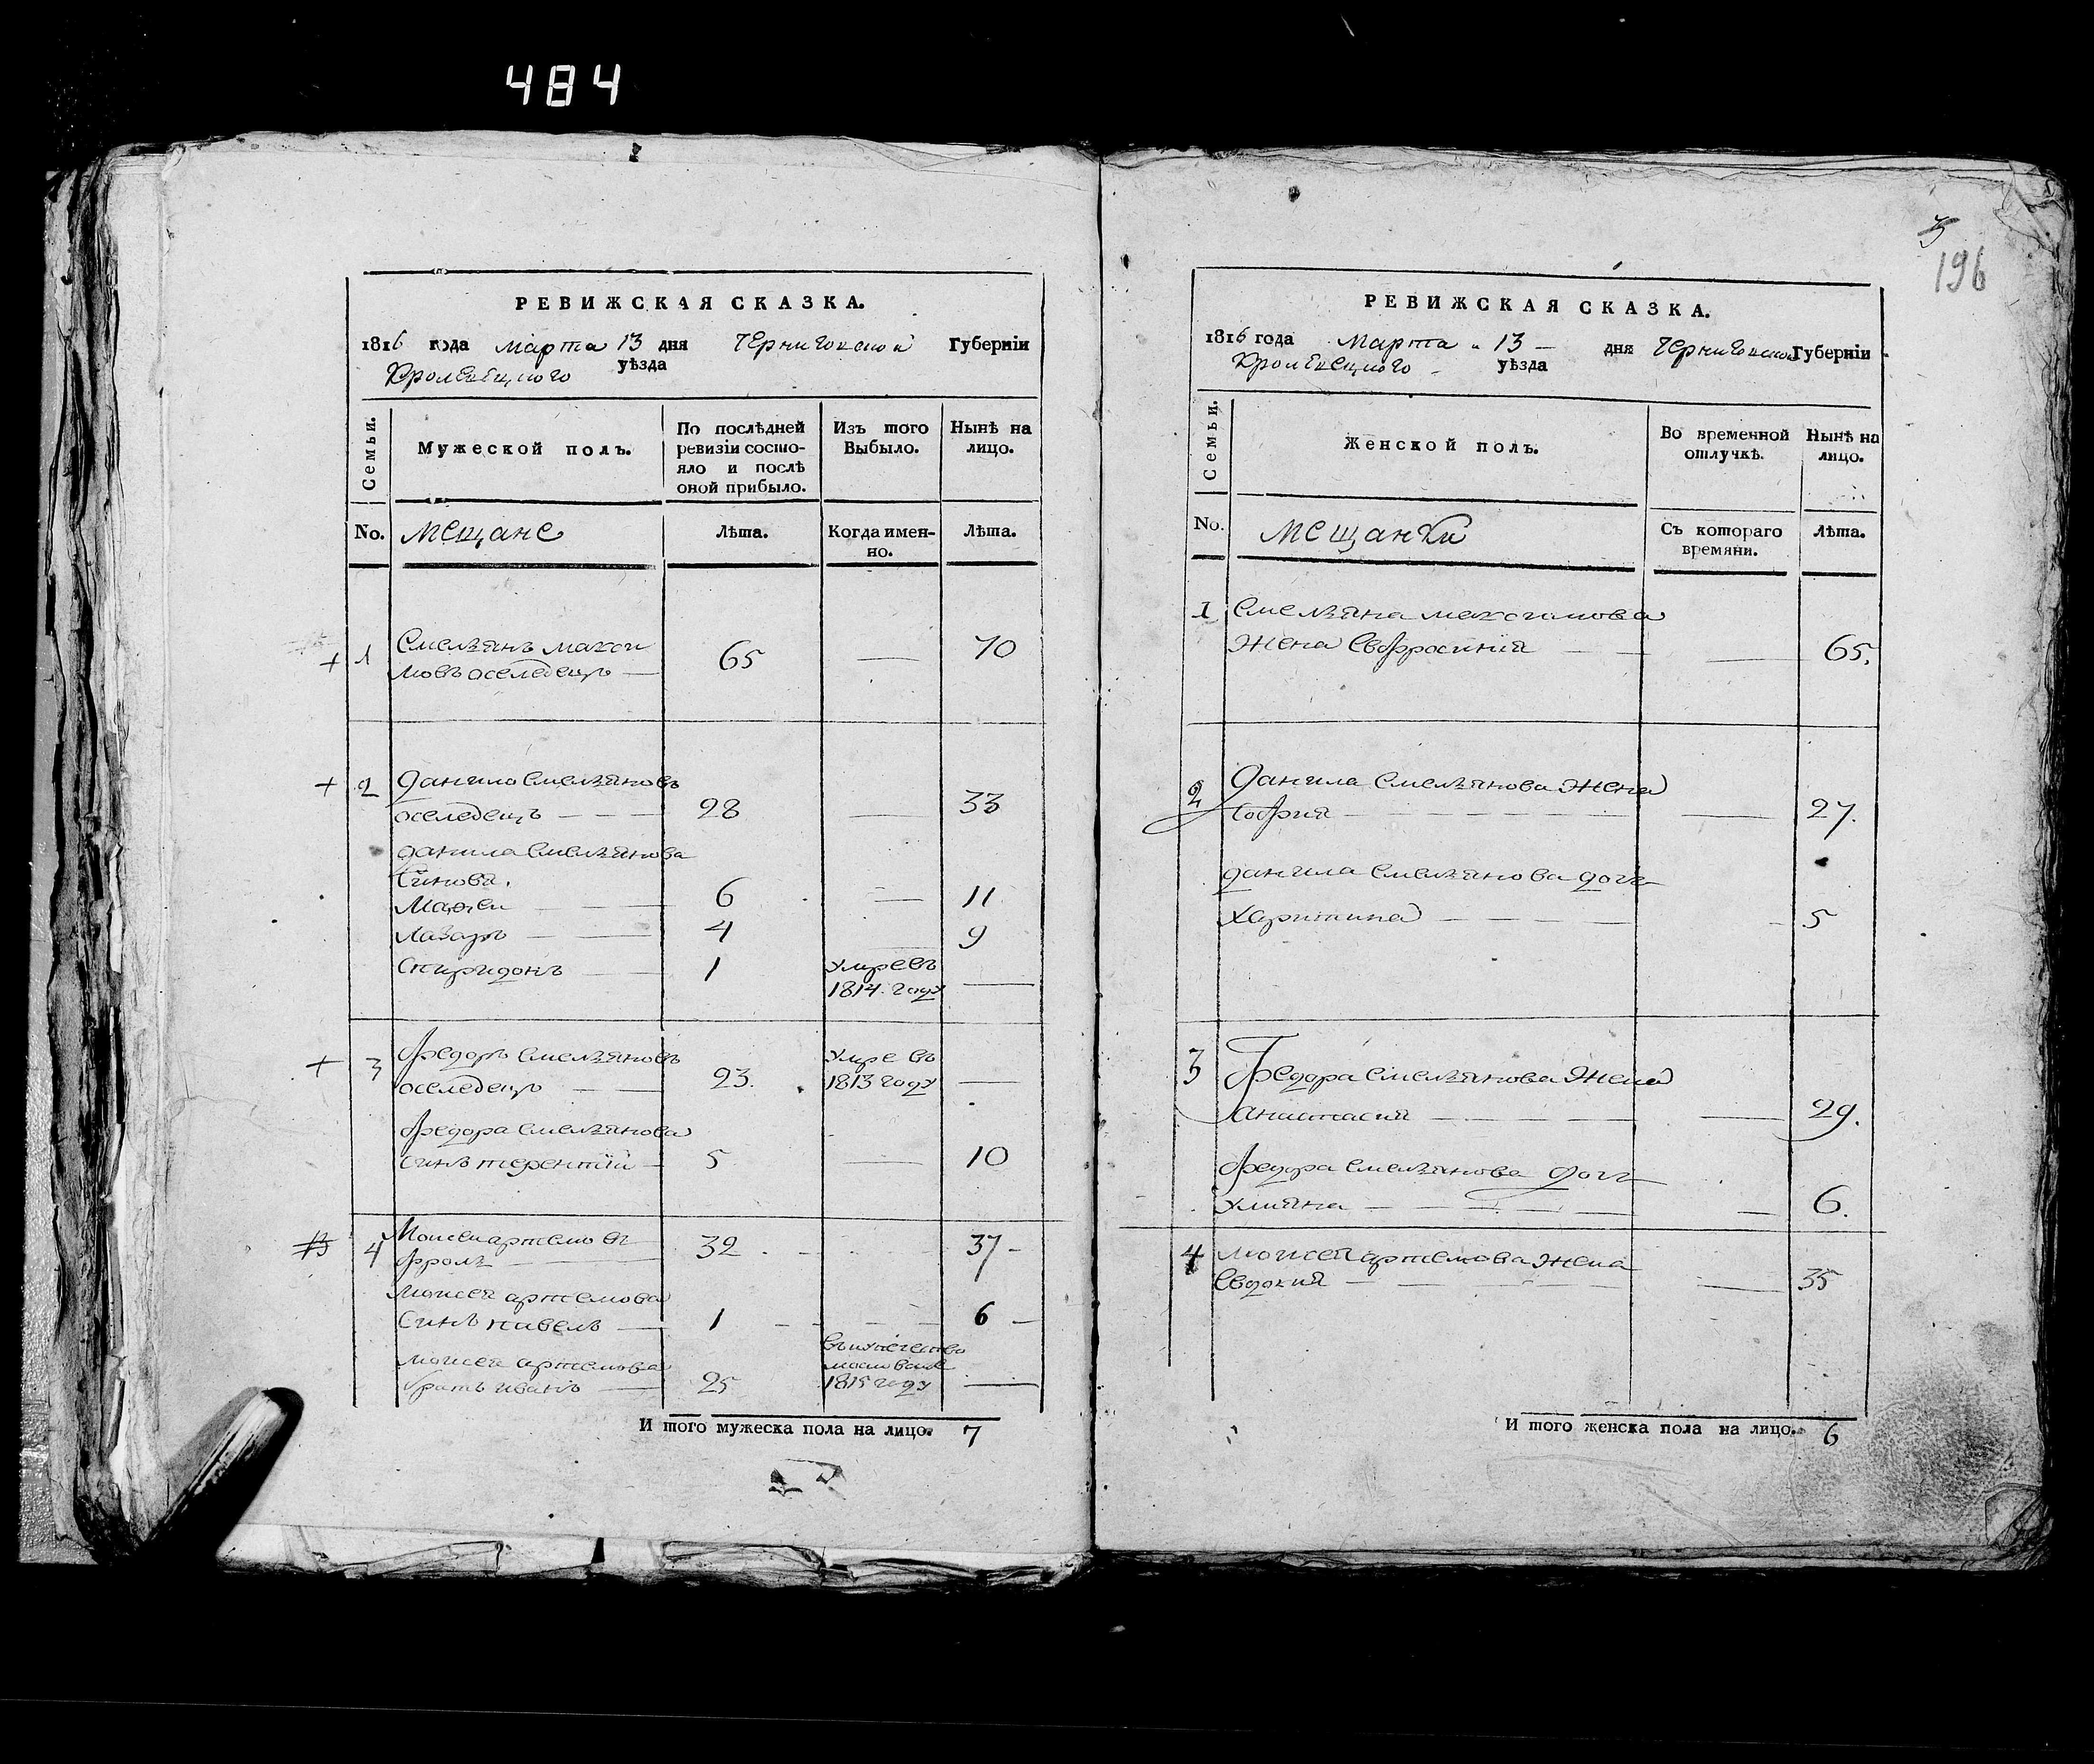 484
РЕВИЖСКАЯ СКАЗКА.
1816 года Марта 13 дня Черниговской Губерніи
Кролевецкого уѣзда
Семьи.
Мужеской полъ.
По послѣдней ревизіи состояло и послѣ оной прибыло.
Изъ того Выбыло.
Нынѣ на лицо.
No. Мещане Лѣта. Когда именно. Лѣта.
1 Емелѣянъ макси
мовъ оселедецъ — 65 — 70
2 Данило Емелѣяновъ
оселедецъ — — — 28 — 33
данила Емелѣянова
Синова.
Матвеи — — 6 — 11
Лазаръ — — 4 — 9
Спиридонъ — 1 умре въ
1814. году —
3 Федоръ Емелѣяновъ
оселедецъ — 23. умре въ
1813 году —
Федора Емелѣянова
Синъ терентій — 5 — 10
4 Моисеи артемовъ
Фролѣ — 32 — 37 —
Моисея артемова
Синъ павелъ — 1 — 6 —
Моисея артемова
братъ иванъ — 25
1815 году —
И того мужеска пола на лицо. 7
3
196
РЕВИЖСКАЯ СКАЗКА.
1816 года Марта 13 — дня Черниговской Губерніи
Кролевецкого уѣзда
Семьи.
Женской полъ.
Во временной отлучкѣ.
Нынѣ на лицо.
No. Мещанки Съ котораго времяни. Лѣта.
1 Емелѣяна максимова
жена Евфросиния — — 65.
2 Данила Емелѣянова жена
София — — 27.
данила Емелѣянова дочь
Харитина — — 5
3 Федора Емелѣянова жена
анастасия — — 29.
Федора Емелѣянова дочь
Улияна — — 6.
4 Моисея артемова жена
Евдокия — — 35
И того женска пола на лицо. 6